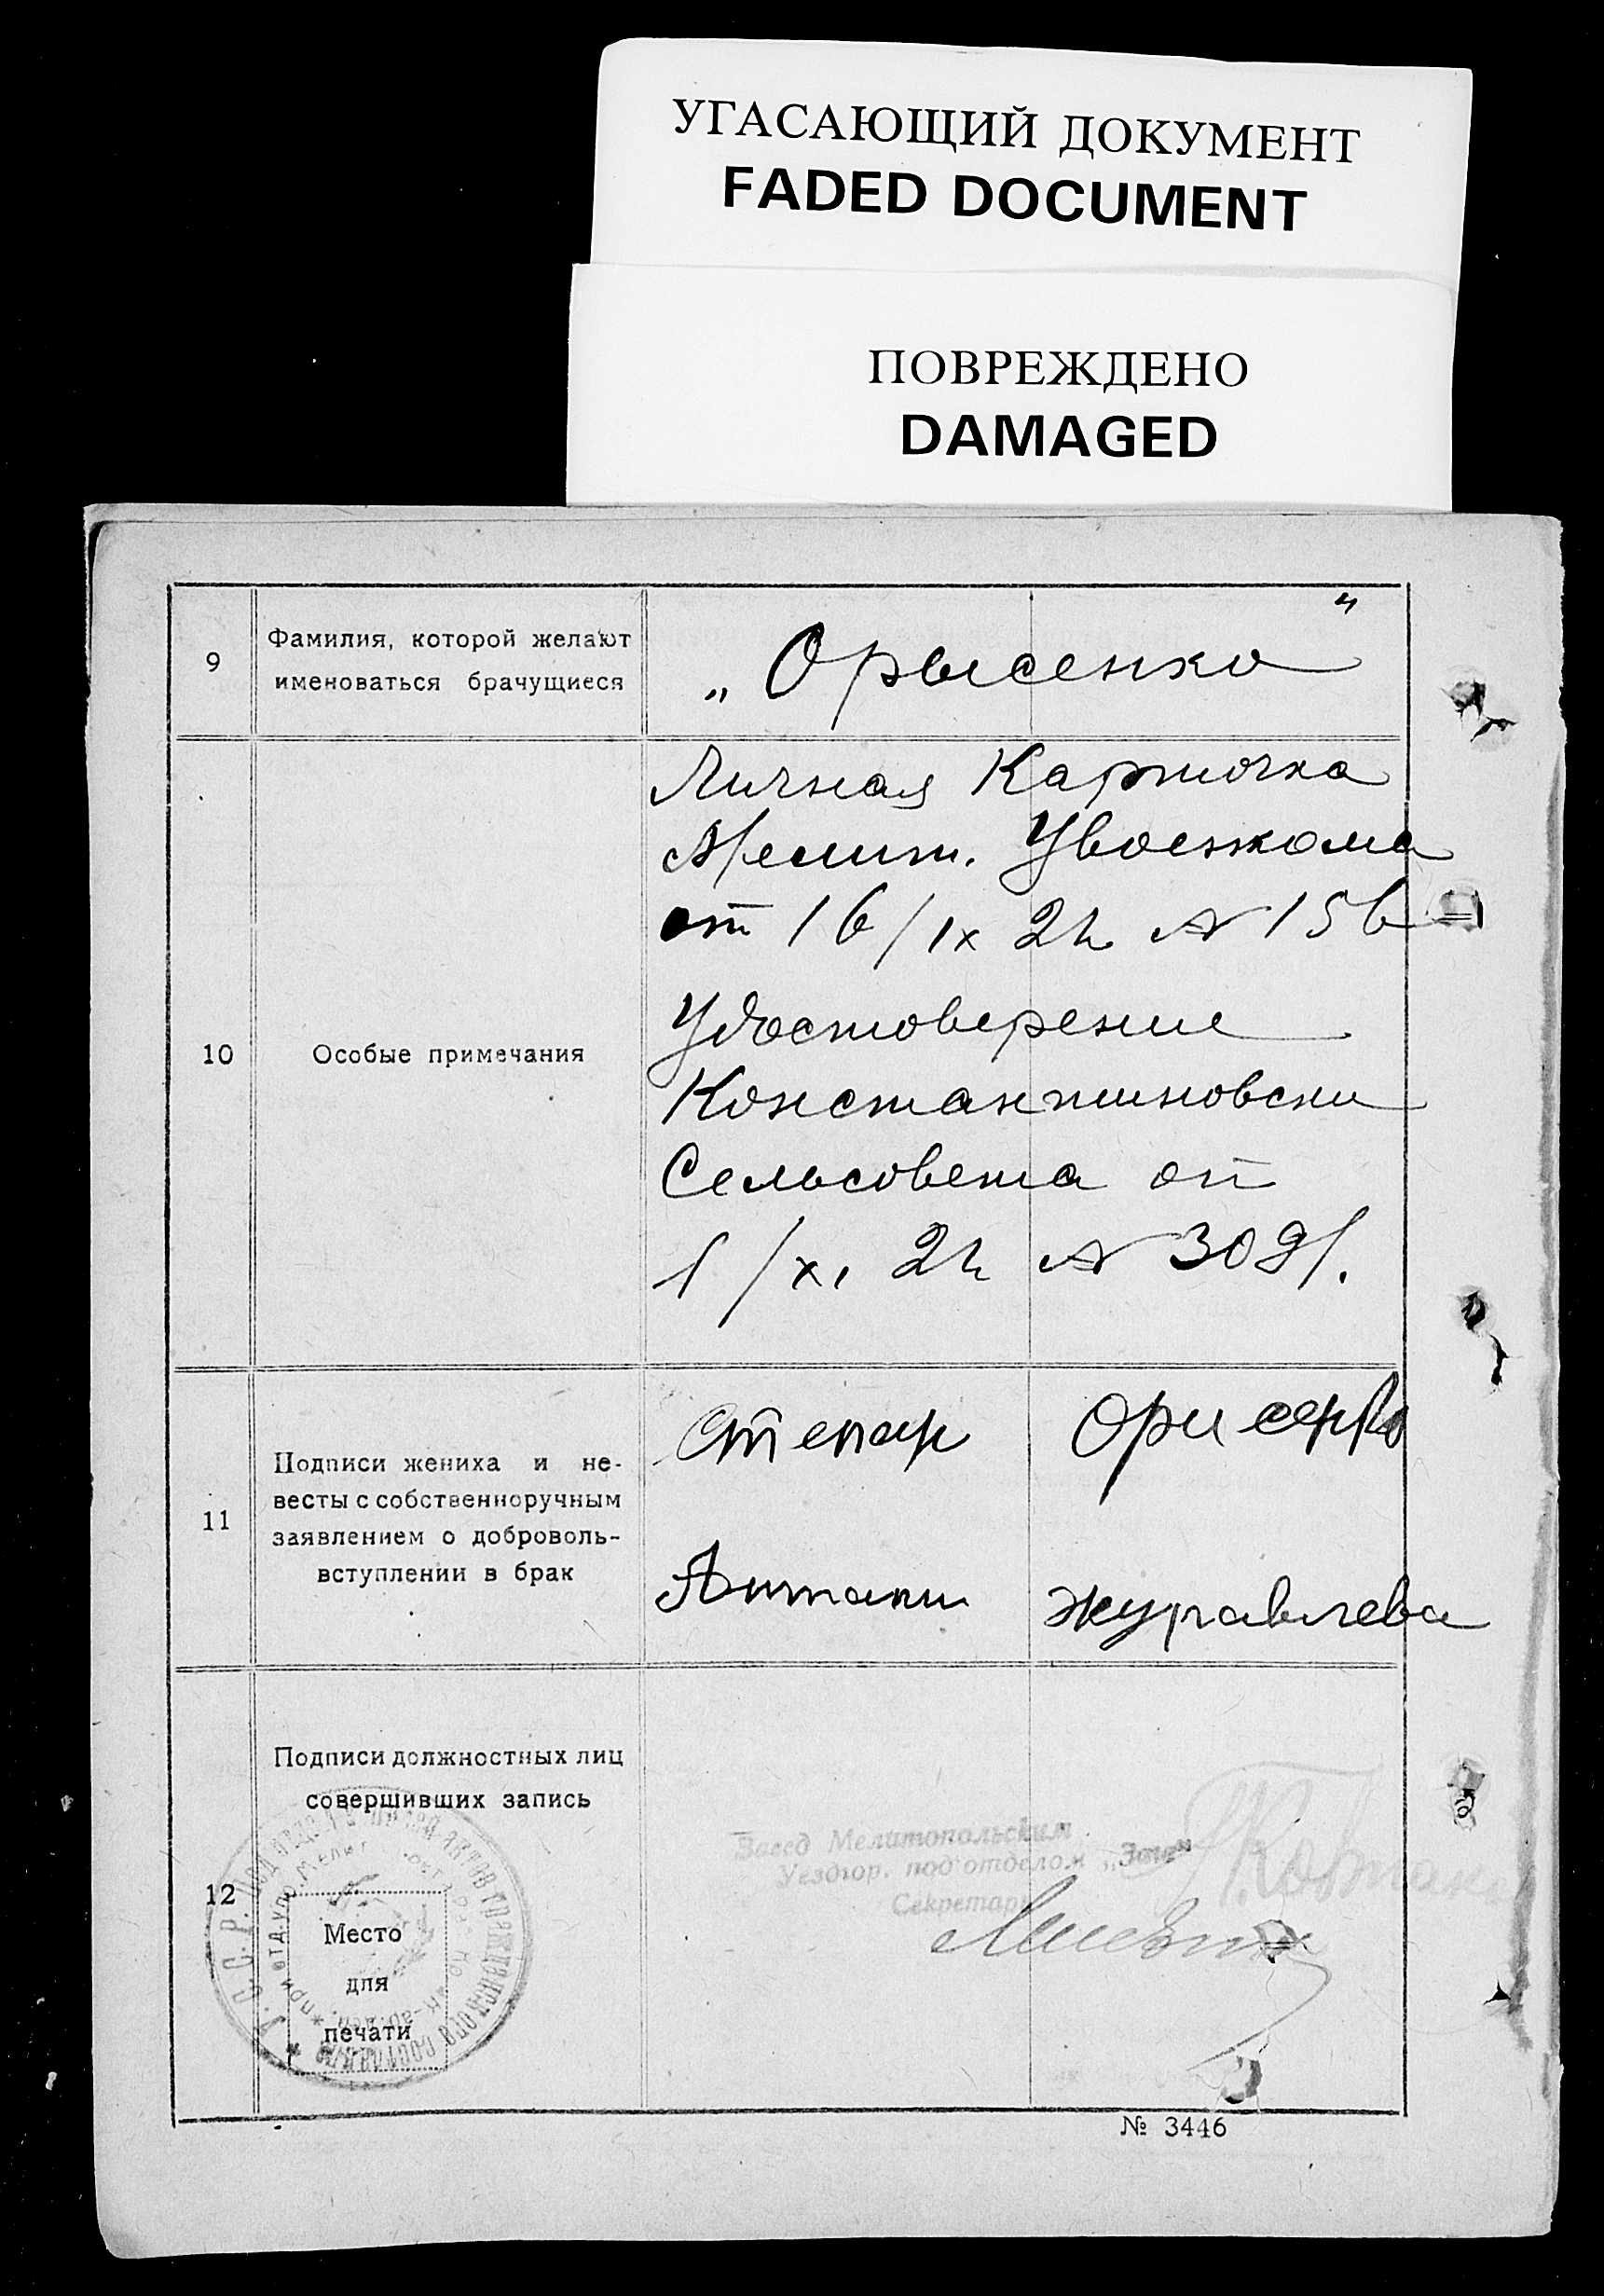 УГАСАЮЩИЙ ДОКУМЕНТ
FADED DOCUMENT
ПОВРЕЖДЕНО
DAMAGED
9
Фамилия, которой желают
именоваться брачущиеся
„Орысенко"
10
Особые примечания
Личная Карточка
Мелит. Увоенкома
от 16/IX 22 № 156
Удостоверение
Константиновски
Сельсовета от
1/XI 22 № 3091.
11
Подписи жениха и не-
весты с собственноручным
заявлением о доброволь-
вступлении в брак
Степан Орисенко
журавлева
12
Подписи должностных лиц
совершивших запись
Завед Мелитопольским
Уездгор. подотделом „Загс"
Секретарь
Место
для
печати
№ 3446